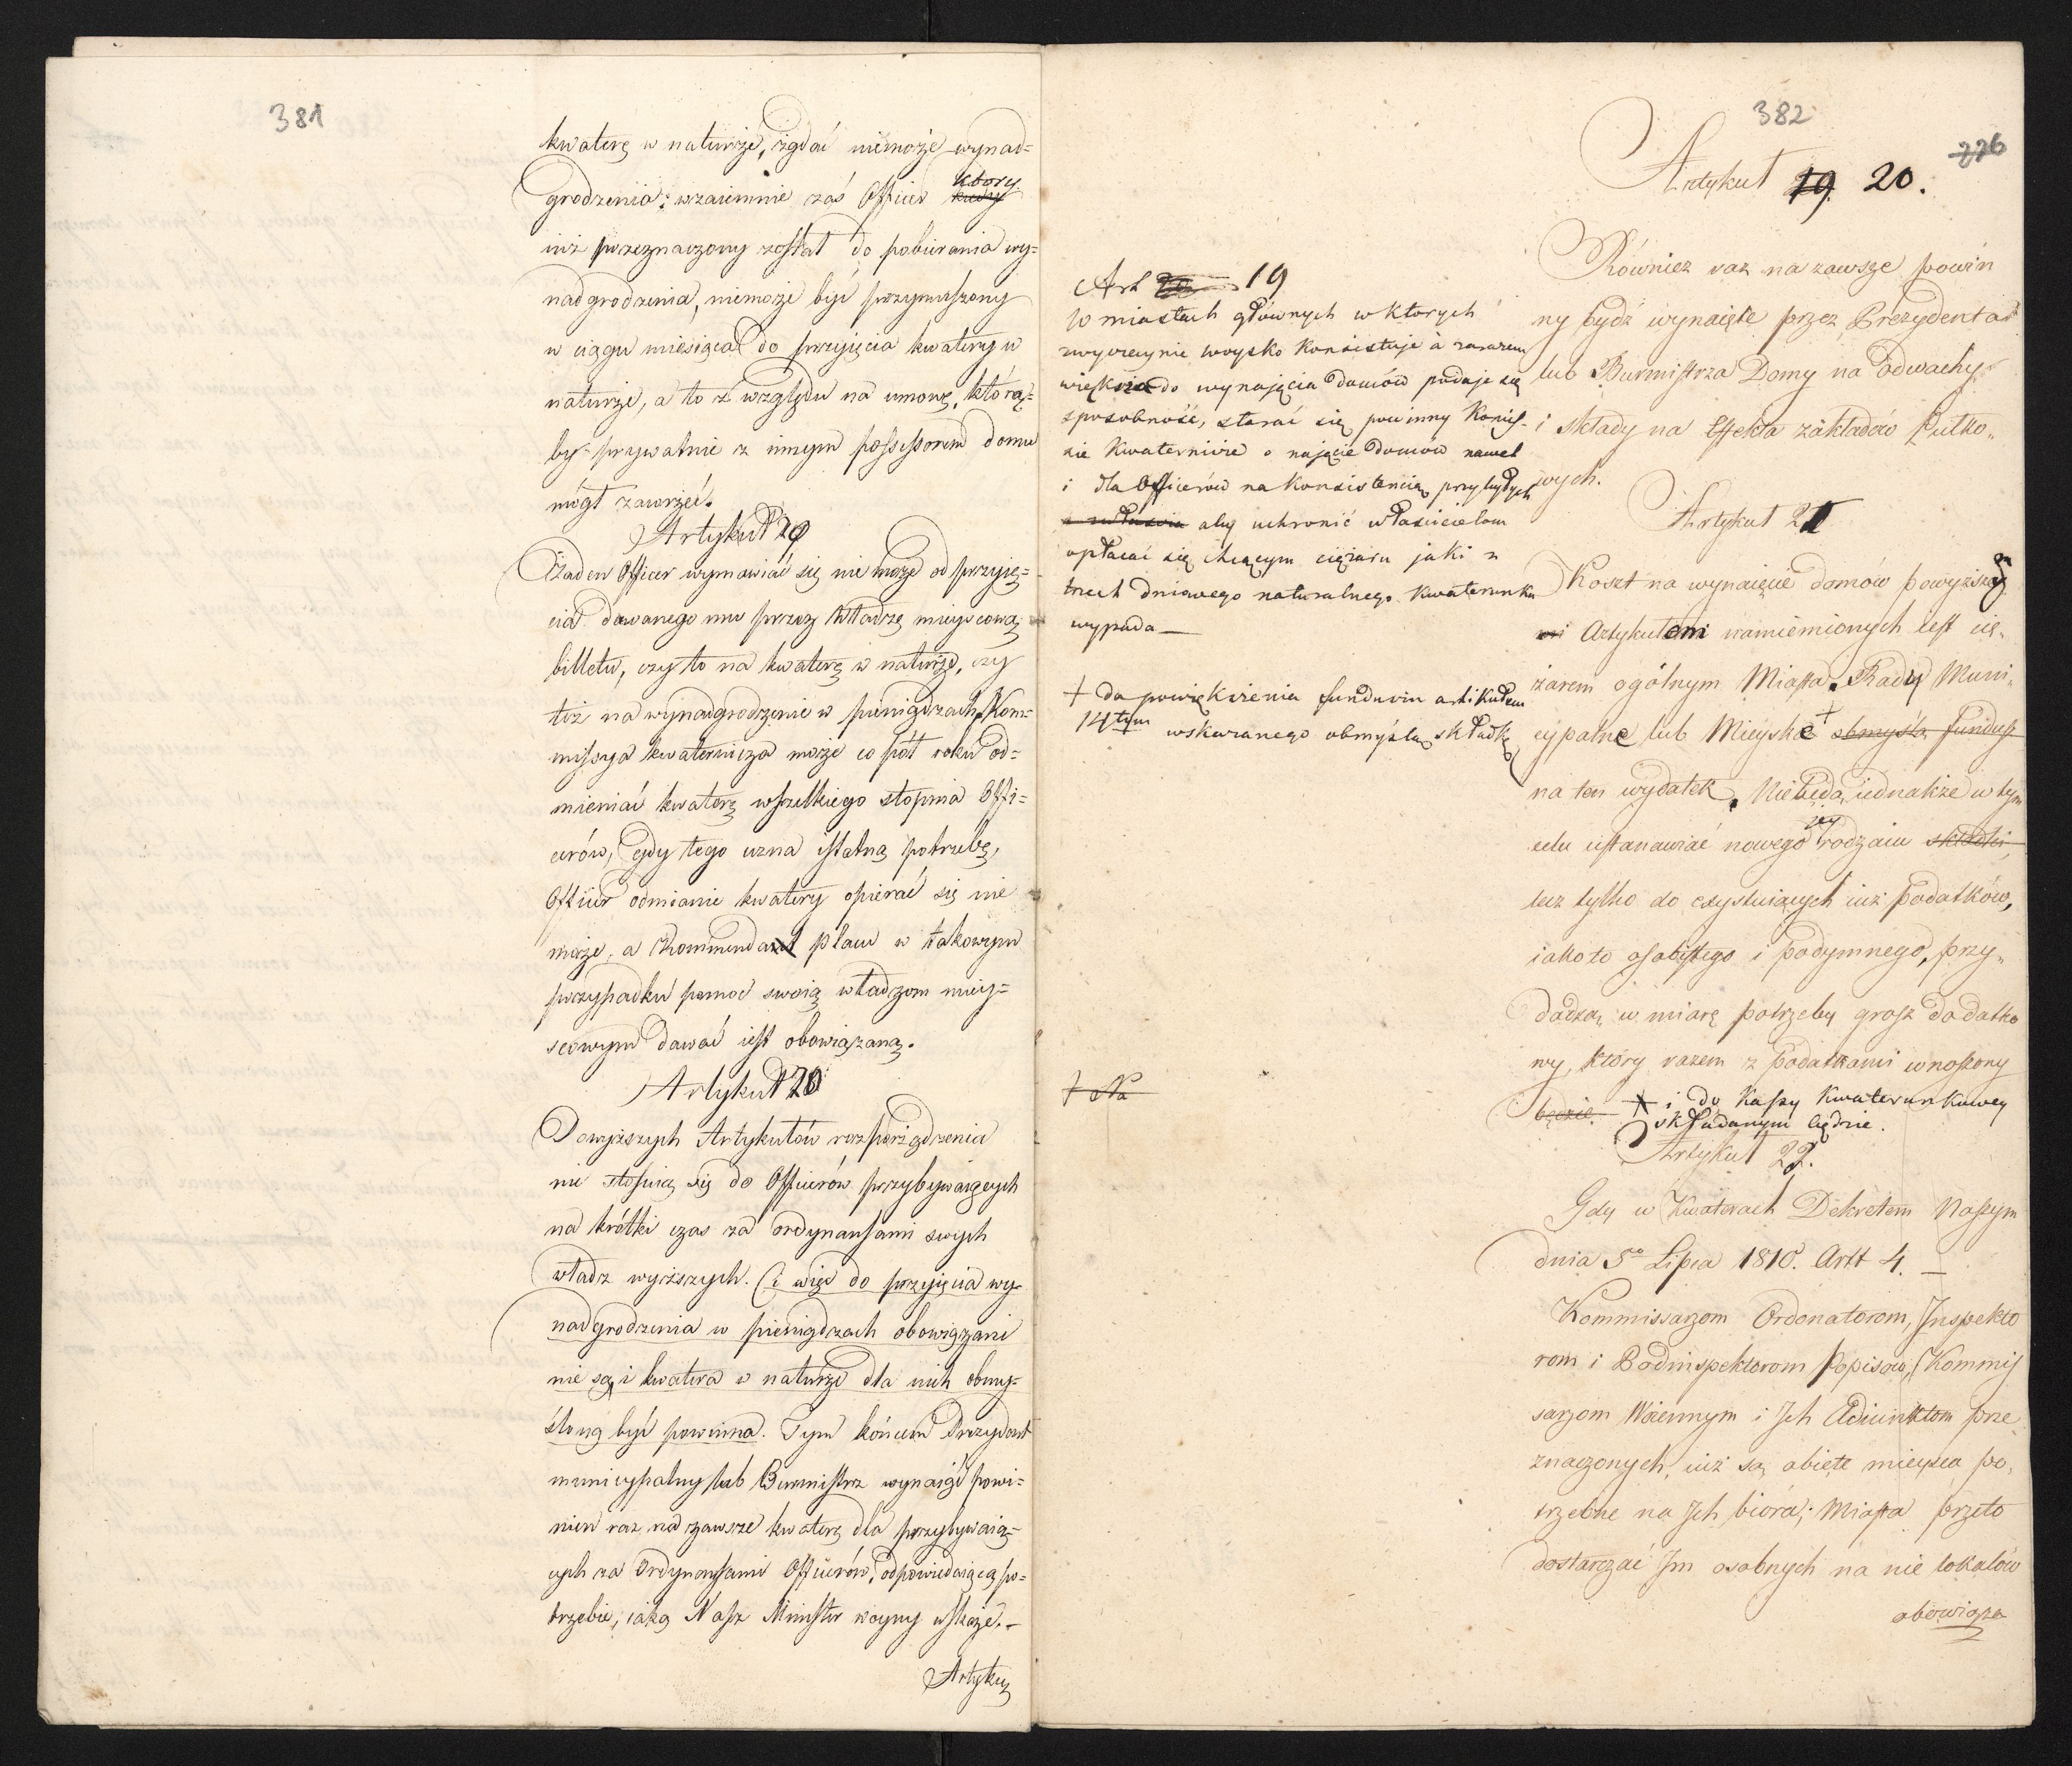 381
kwaterę w naturze, żądać niemoże wynad=
grodzenia; wzaiemnie zaś Officer który
iuż przeznaczony został do pobierania wy=
nadgrodzenia, niemoże być przymuszony
w ciągu miesiąca do przyięcia kwatery w
naturze, a to z względu na umowę, którą=
by prywatnie z innym possessorem domu
mógł zawrzeć.
Artykuł
Żaden Officer wymawiać się nie może od przyię=
cia dawanego mu przez Władzę mieyscową
billetu, czy to na kwaterę w naturze, czy
też na wynadgrodzenie w pieniądzach. Kom=
missya kwaternicza może co pół roku od=
mieniać kwaterę wszelkiego stopnia Offi=
cerów, gdy tego uzna istotną potrzebę,
Officer odmianie kwatery opierać się nie
może, a Kommendant placu w takowym
przypadku pomoc swoią władzom miey=
scowym dawać iest obowiązany.
Artykuł 20
Powyższych Artykułów rozporządzenia
nie stosuią się do Officerów przybywaiących
na krótki czas za ordynansami swych
władz wyższych. (i więc do przyięcia wy=
nadgrodzenia w pieniądzach obowiązani
nie są, i kwatera w naturze dla nich obmy=
śloną być powinna. Tym końcem Prezydent
municypalny lub Burmistrz wynaiąć powi=
nien raz na zawsze kwaterę dla przybywaią=
cych za Ordynansami Officerów, odpowiedaiącą po=
trzebie, iaką Nasz Minister woyny wskaże. –
Artykuł
382
226
Artykuł 19. 20.
Art 20 19
W miastach głównych w których
zwyczaynie woysko konsistuje a zarazem
większa do wynajęcia domów podaje się
sposobność, starać się powinny Komis-
sie Kwaternicze o najęcie domów nawet
i dla Officerów na konsistencią przybyłych
aby uchronić właścicielom
opłacać się chcącym ciężaru jaki z
trzech dniowego naturalnego kwaterunku
wypada —
+ do powiększenia funduszu artikułem
14tym wskazanego obmyślą składkę
+ Na
Również raz na zawsze powin
ny bydź wynaięte przez Prezydenta
lub Burmistrza Domy na odwachy
i składy na Effekta zakładów Pułko„
wych.
Artykuł 21
Koszt na wynaięcie domów powyższym
Artykułem namienionych iest cię„
żarem ogólnym Miasta. Rady Muni„
cypalne lub Mieyskie + obmyślą fundusz
na ten wydatek. Niebędą iednakże w tym
celu ustanawiać nowego jey rodzaiu składki,
lecz tylko do exystuiących iuż podatków,
iako to osobistego i podymnego, przy„
dadzą w miarę potrzeby grosz dodatko
wy, który razem z podatkami wnoszony
będzie. + i do Kassy Kwaterunkowey
składanym będzie.
Artykuł 22.
Gdy w Kwaterach Dekretem Naszym
dnia 5o Lipca 1810. Artt 4. —
Kommissarzom Ordonatorom, Inspekto
rom i Podinspektorom Popisów, Kommis
sarzom Woiennym i Ich Adiunktom prze
znaczonych, iuż są obięte mieysca po„
trzebne na Ich bióra; Miasta przeto
dostarczać Im osobnych na nie lokalów
obowiąza